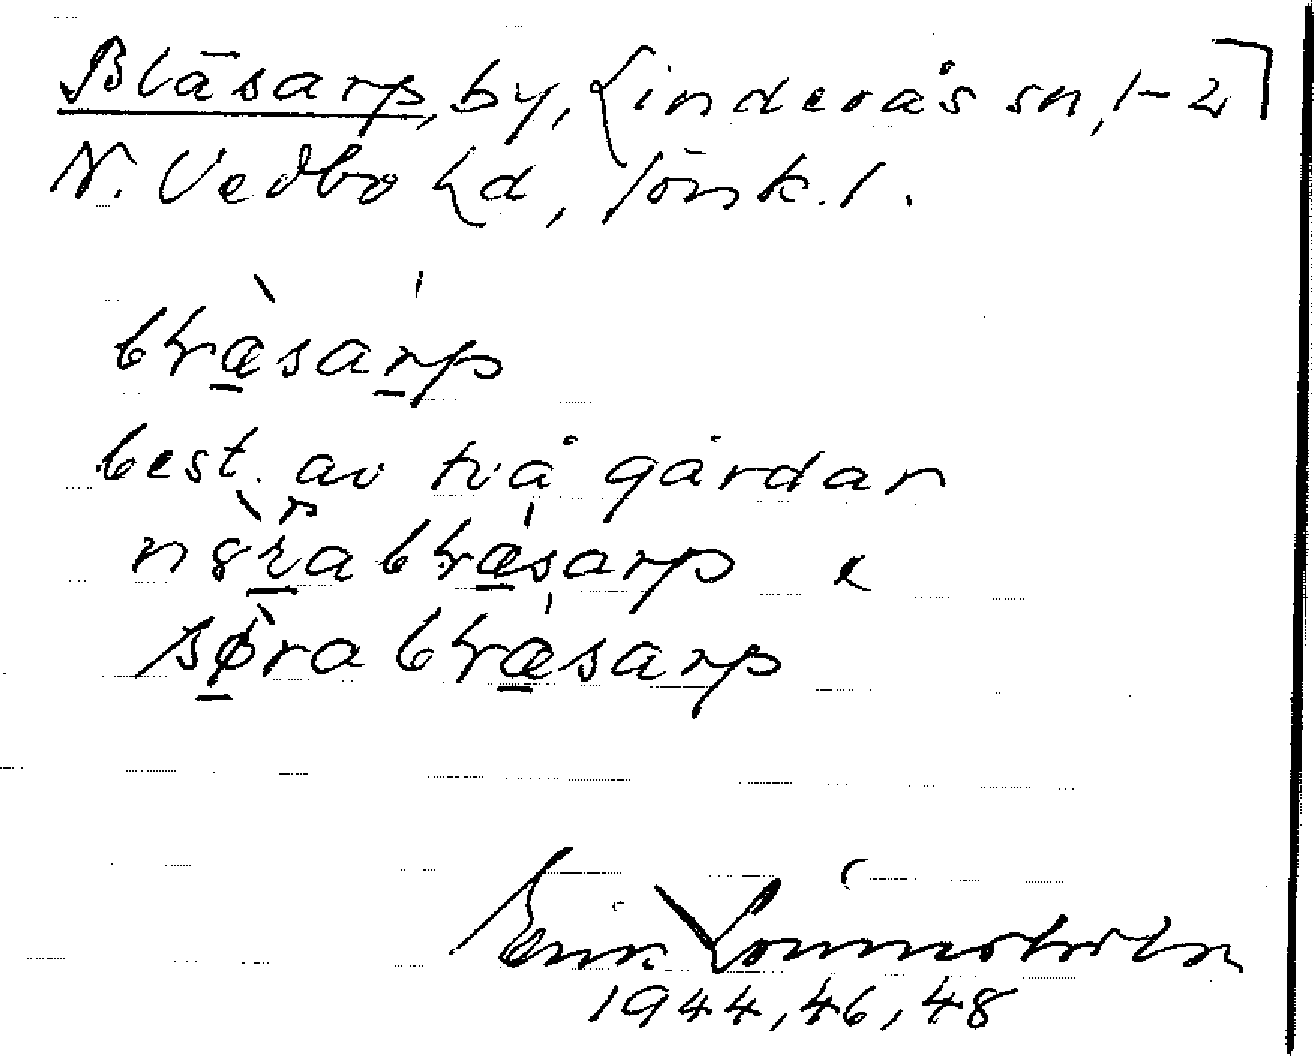 Bläsarp, by, Linderås sn, 1-2
N. Vedbo hd, Jönk. l.
bɫæ̠̀sar̠p
best. av två gårdar
nɞ̀r̠abɫǽ̠sarp &
sø̠̀rabɫǽ̠sarp
Erik Lönnerholm
1944, 46, 48